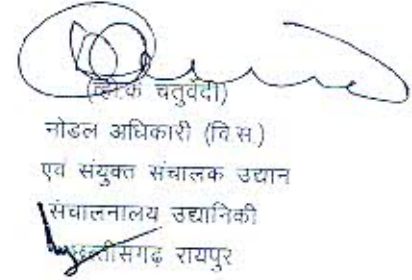 (व्ही.के चतुर्वेदी)
नोडल अधिकारी (वि.स.)
एवं संयुक्त संचालक उद्यान
संचालनालय उद्यानिकी
छत्तीसगढ़ रायपुर